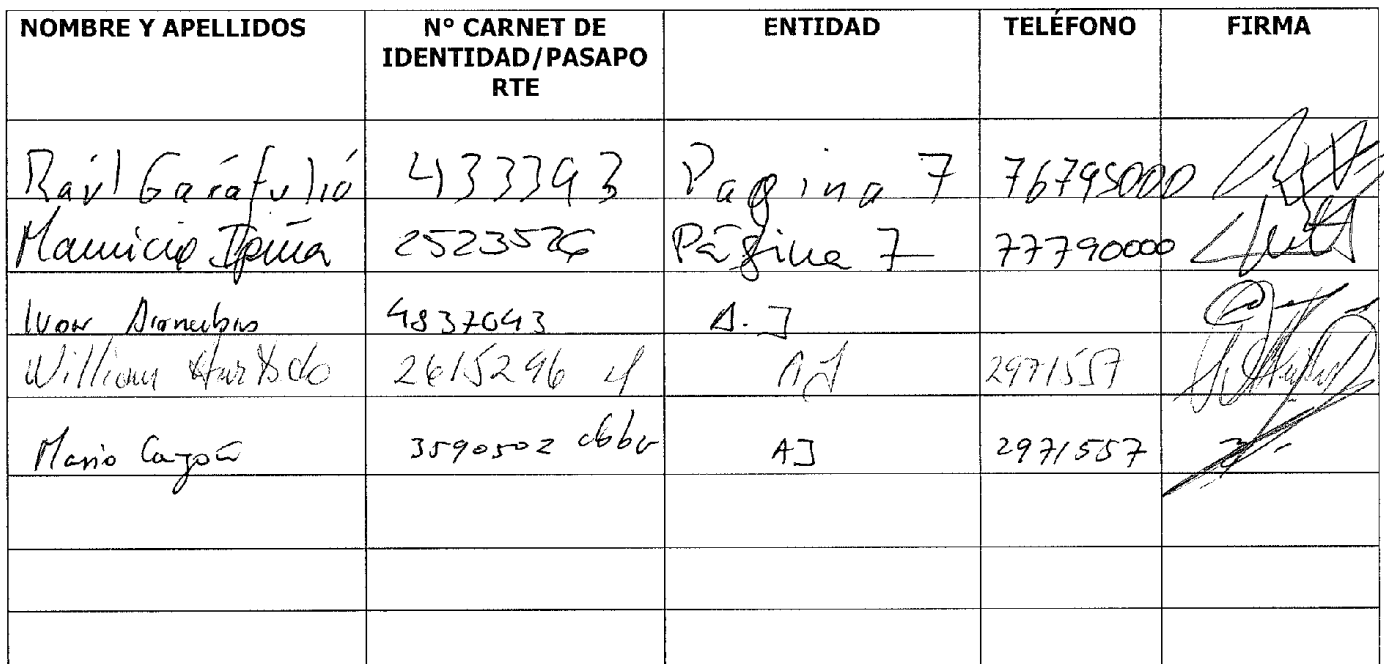 NOMBRE Y APELLIDOS Nº CARNET DE IDENTIDAD/PASAPO RTE ENTIDAD TELÉFONO FIRMA
Raúl Garáfulić 433393 Pagina 7 76795000
Mauricio Ipiña 2523526 Página 7 77790000
Ivar 4837043 A.J
William Hurtado 2615296 AJ 2971557
Mario 3590502 cbba AJ 2971557